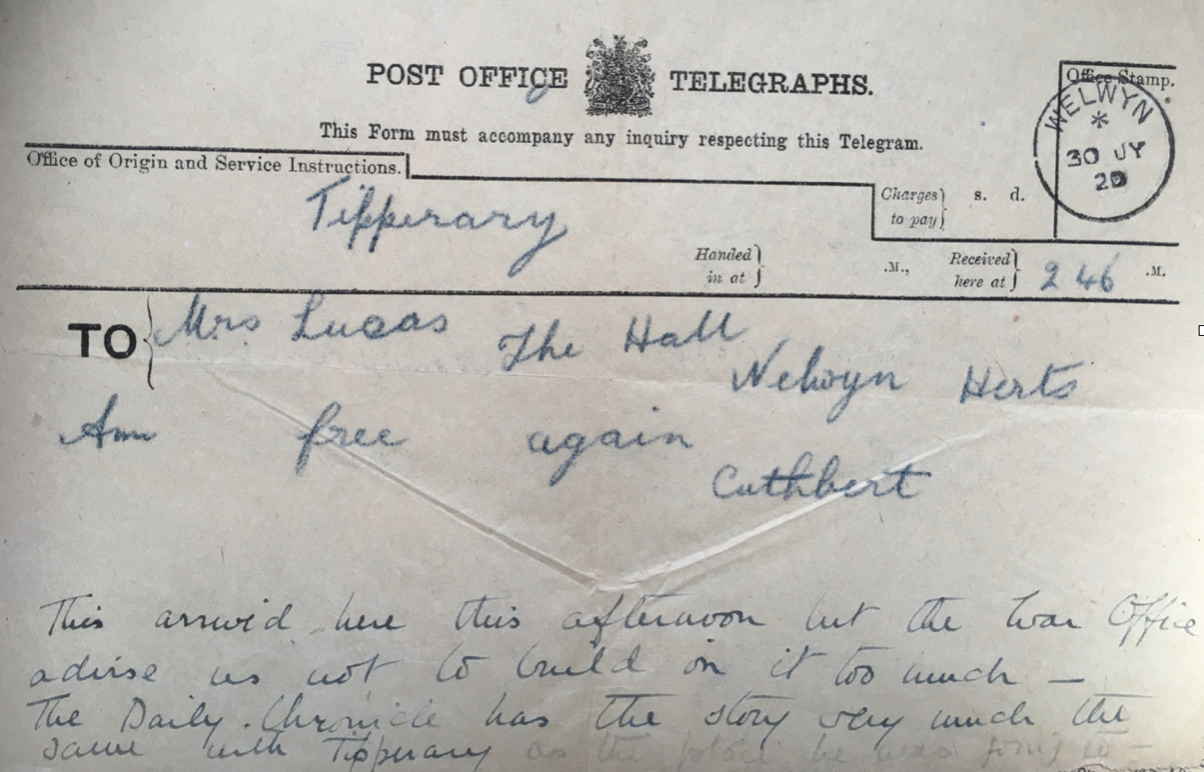 POST OFFICE TELEGRAPHS.
Office Stamp.
WELWYN
*
30 JY
20
This Form must accompany any inquiry respecting this Telegram.
Office of Origin and Service Instructions.
Tipperary
Charges to pay } s. d.
Handed in at } .M., Received here at } 2 46 .M.
TO { Mrs Lucas The Hall
Welwyn Herts
Am free again
Cuthbert
This arrived here this afternoon but the War Office
advise us not to build on it too much –
The Daily Chronicle has the story very much the
same with Tipperary as the place he was going to –